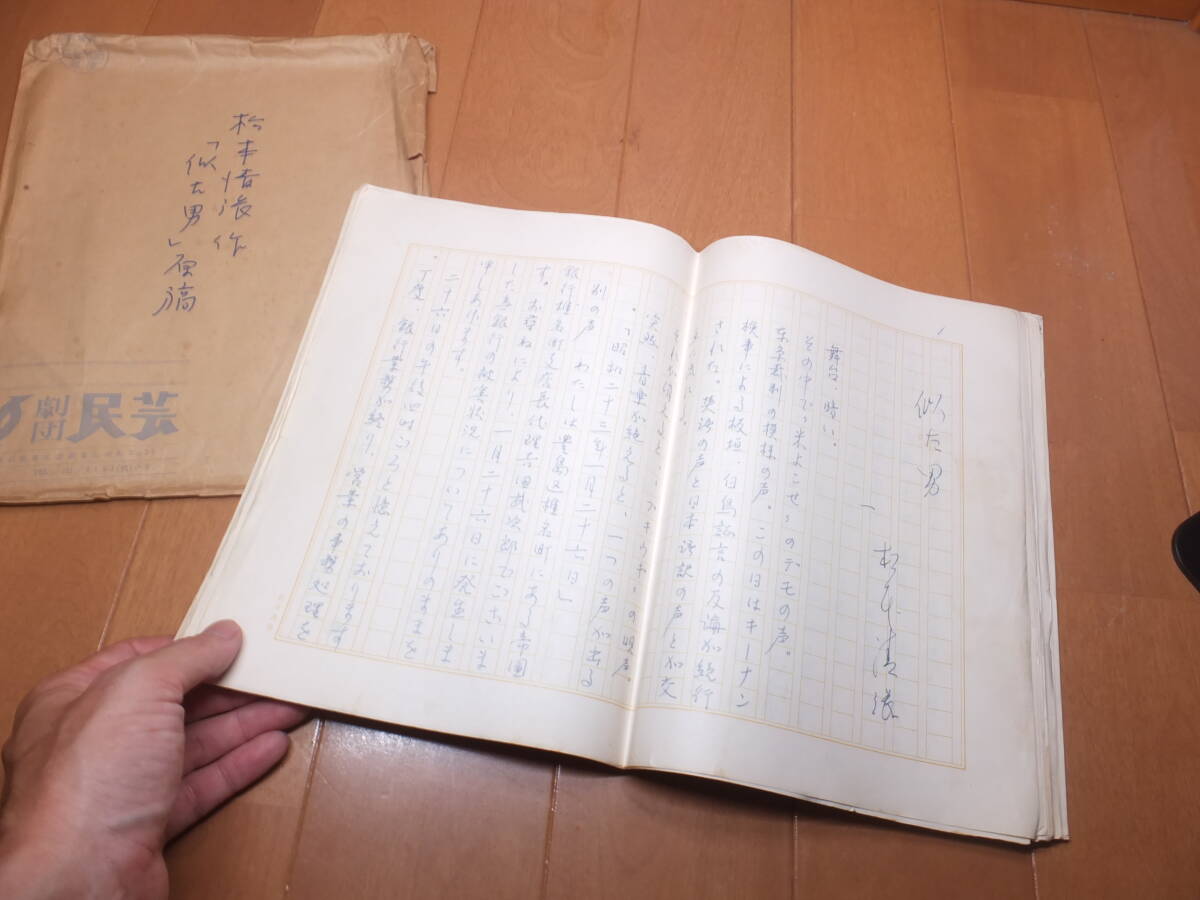 松本清張作
「似た男」原稿
劇団民芸
1
似た男
松本清張
一
舞台、暗い。
その中で、米よこせ、のデモの声。
東京裁判の模様の声。この日はキーナン
検事による板垣、白鳥証言の反論が続行
された。英語の声と日本語訳の声とが交
突然、音楽が絶えると、一つの声が出る
。「昭和二十三年一月二十六日」
別の声 わたしは豊島区椎名町にある帝国
銀行椎名町支店長代理吉田武次郎でございま
す。お尋ねにより、一月二十六日に発生しま
した当銀行の被害状況についてありのままを
申しあげます。
二十六日の午後四時ごろと憶えております
。丁度、銀行業務が終り、営業の事務処理を